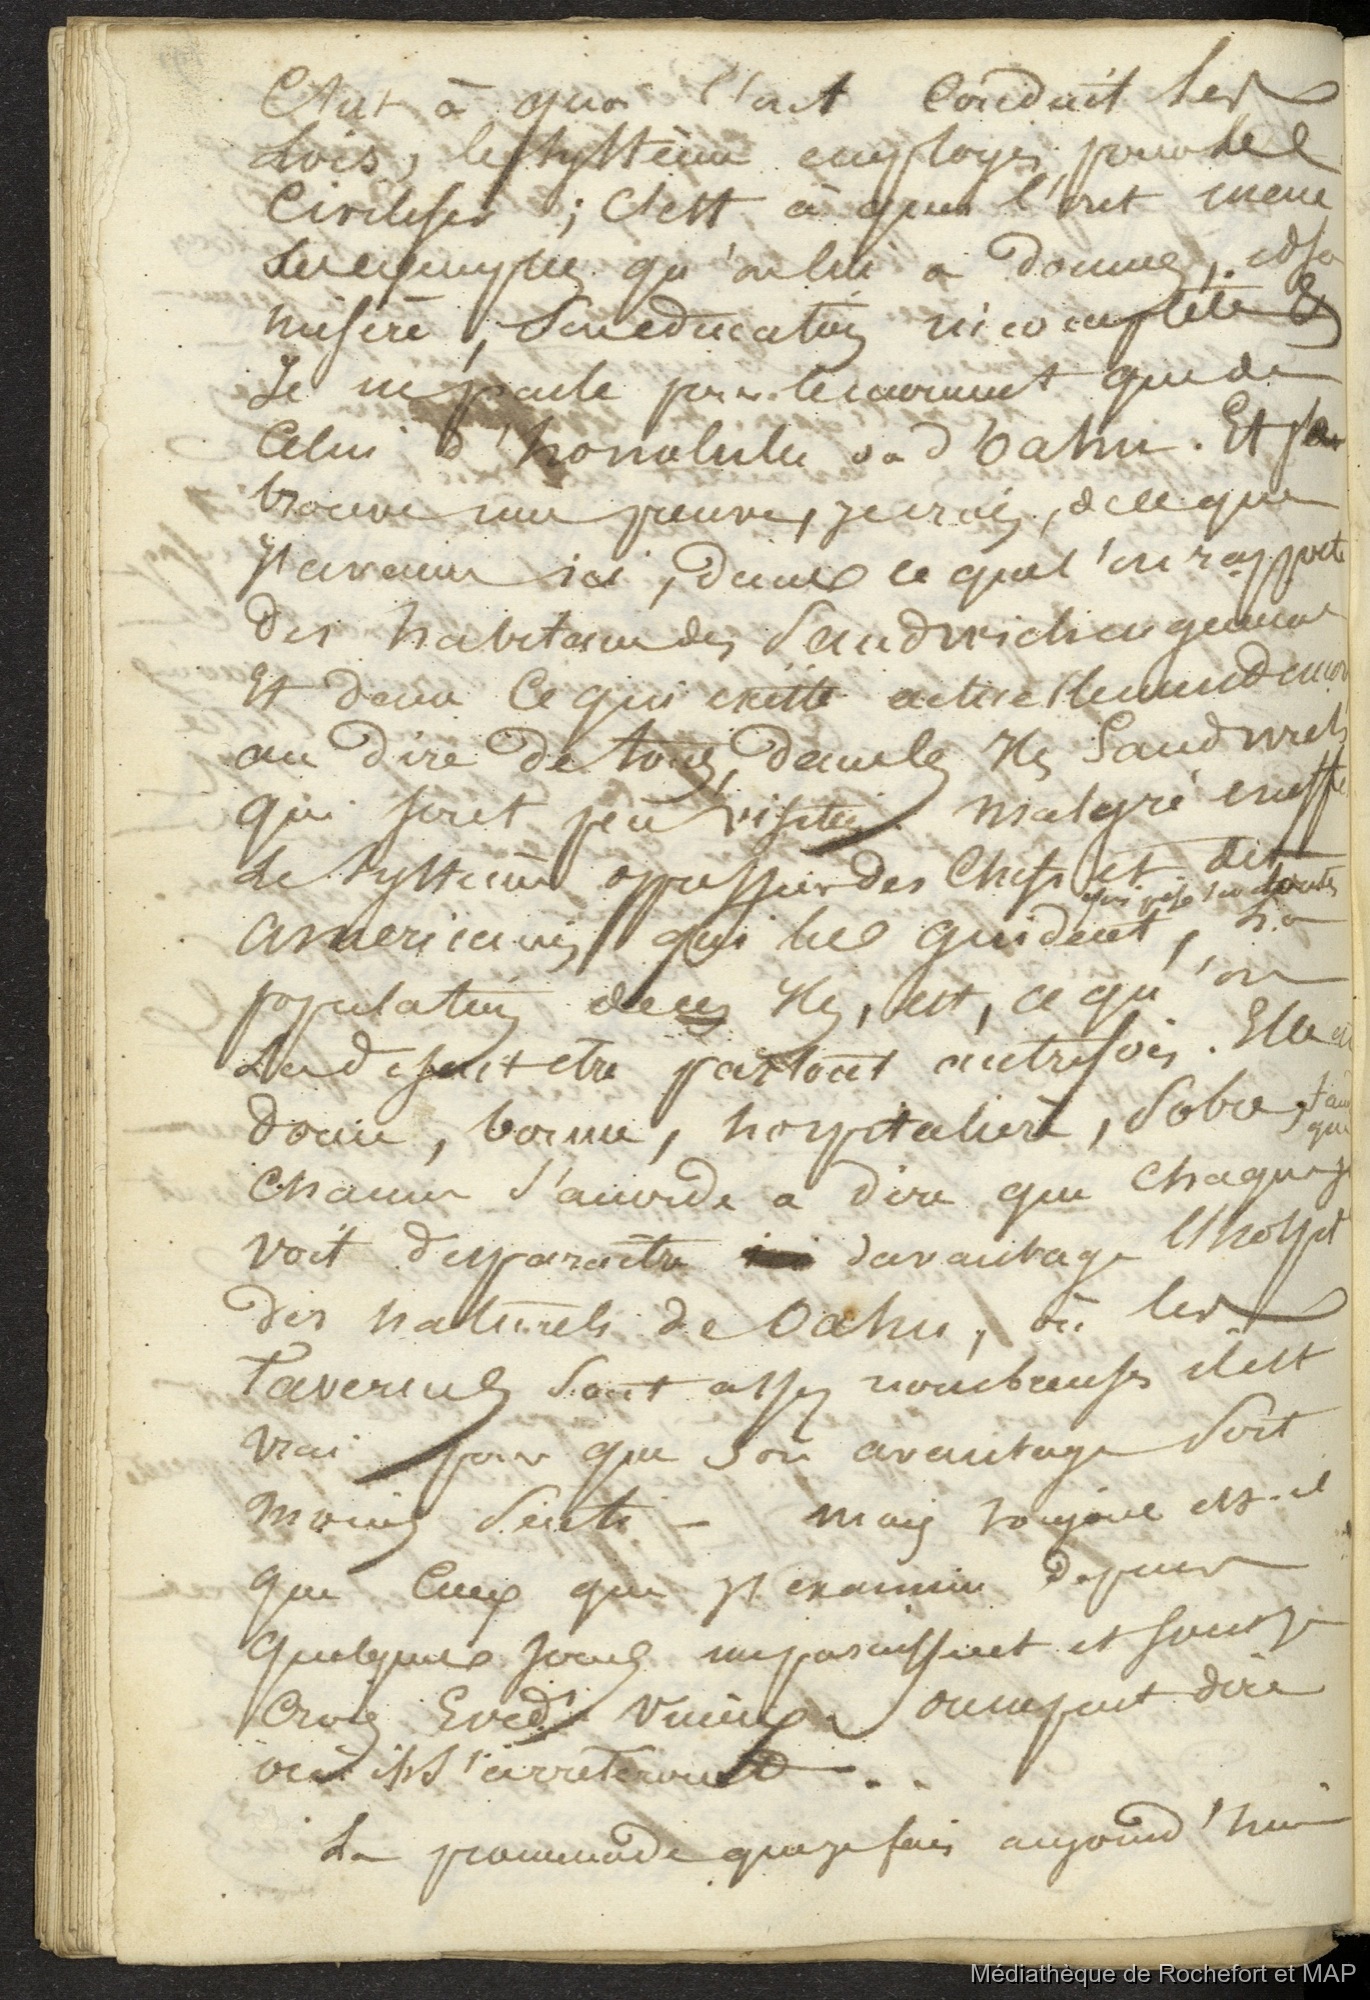 C'est à quoi l'ont conduit les
Lois, le systême employé pour les
Civiliser ; C'est à quoi l'ont mené
les exemples qu'on lui a donnés, et sa
misère, son education incomplète &
Je ne parle pour le moment que de
celui d'honolulu ou d'Oahu. Et j'en
trouve une preuve, je crois, de ce que
j'avance ici, dans ce que l'on rapporte
des habitans des Sandwich en general
Et dans ce qui existe actuellement encor
au dire de tous, dans les Iles Sandwich
qui sont peu visitées. malgré en effet
Le systême oppressif des Chefs et des
qui pèse sur toutes
americains qui les guident, la
population de ces Iles, est, ce qu'on
La disait être partout autrefois. Elle est
douce, bonne, hospitalière, sobre, tandis
que
chacun s'accorde a dire que chaque j
voit disparaître davantage l'hospit
des naturels de Oahu, où les
Tavernes sont assez nombreuses il est
vrai pour que son avantage soit
moins senti - mais toujours est-il
que ceux que j'examine depuis
quelques jours me paraissent et sont je
crois Evedt vicieux. on ne peut dire
où ils s'arrêteront . .
La promenade que je fais aujourd'hui